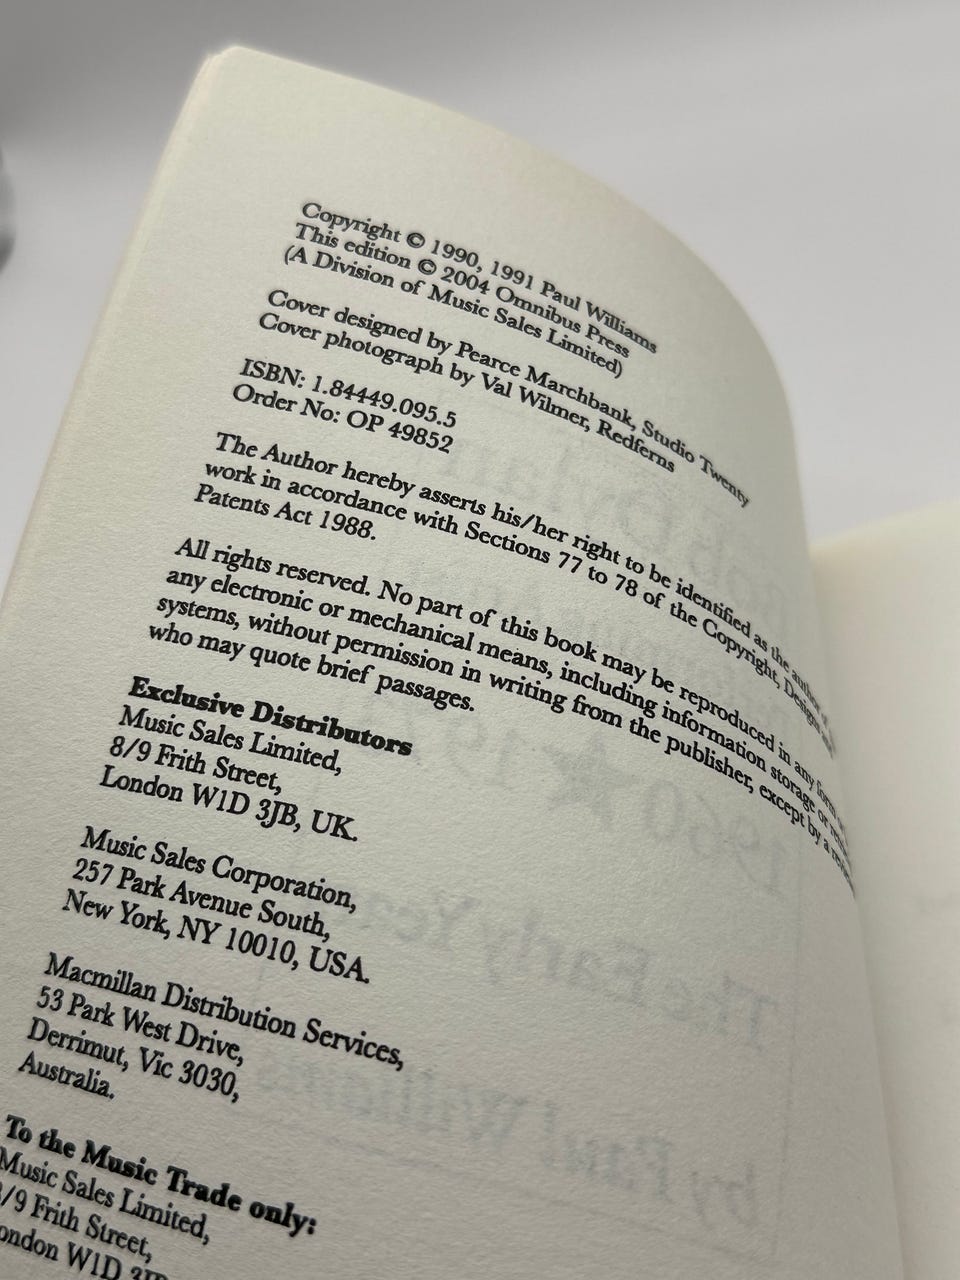 Copyright © 1990, 1991 Paul Williams
This edition © 2004 Omnibus Press
(A Division of Music Sales Limited)
Cover designed by Pearce Marchbank, Studio Twenty
Cover photograph by Val Wilmer, Redferns
ISBN: 1.84449.095.5
Order No: OP 49852
The Author hereby asserts his/her right to be identified as the author of
work in accordance with Sections 77 to 78 of the Copyright, Designs and
Patents Act 1988.
All rights reserved. No part of this book may be reproduced in any form or
any electronic or mechanical means, including information storage or
systems, without permission in writing from the publisher, except by a
who may quote brief passages.
Exclusive Distributors
Music Sales Limited,
8/9 Frith Street,
London W1D 3JB, UK.
Music Sales Corporation,
257 Park Avenue South,
New York, NY 10010, USA.
Macmillan Distribution Services,
53 Park West Drive,
Derrimut, Vic 3030,
Australia.
To the Music Trade only:
Music Sales Limited,
/9 Frith Street,
ondon W1D 3JB